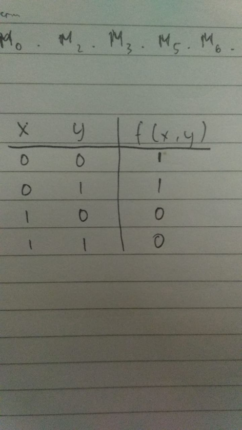 M₀ . M₂ . M₃ . M₅ . M₆ .
x y f(x,y)
0 0 1
0 1 1
1 0 0
1 1 0